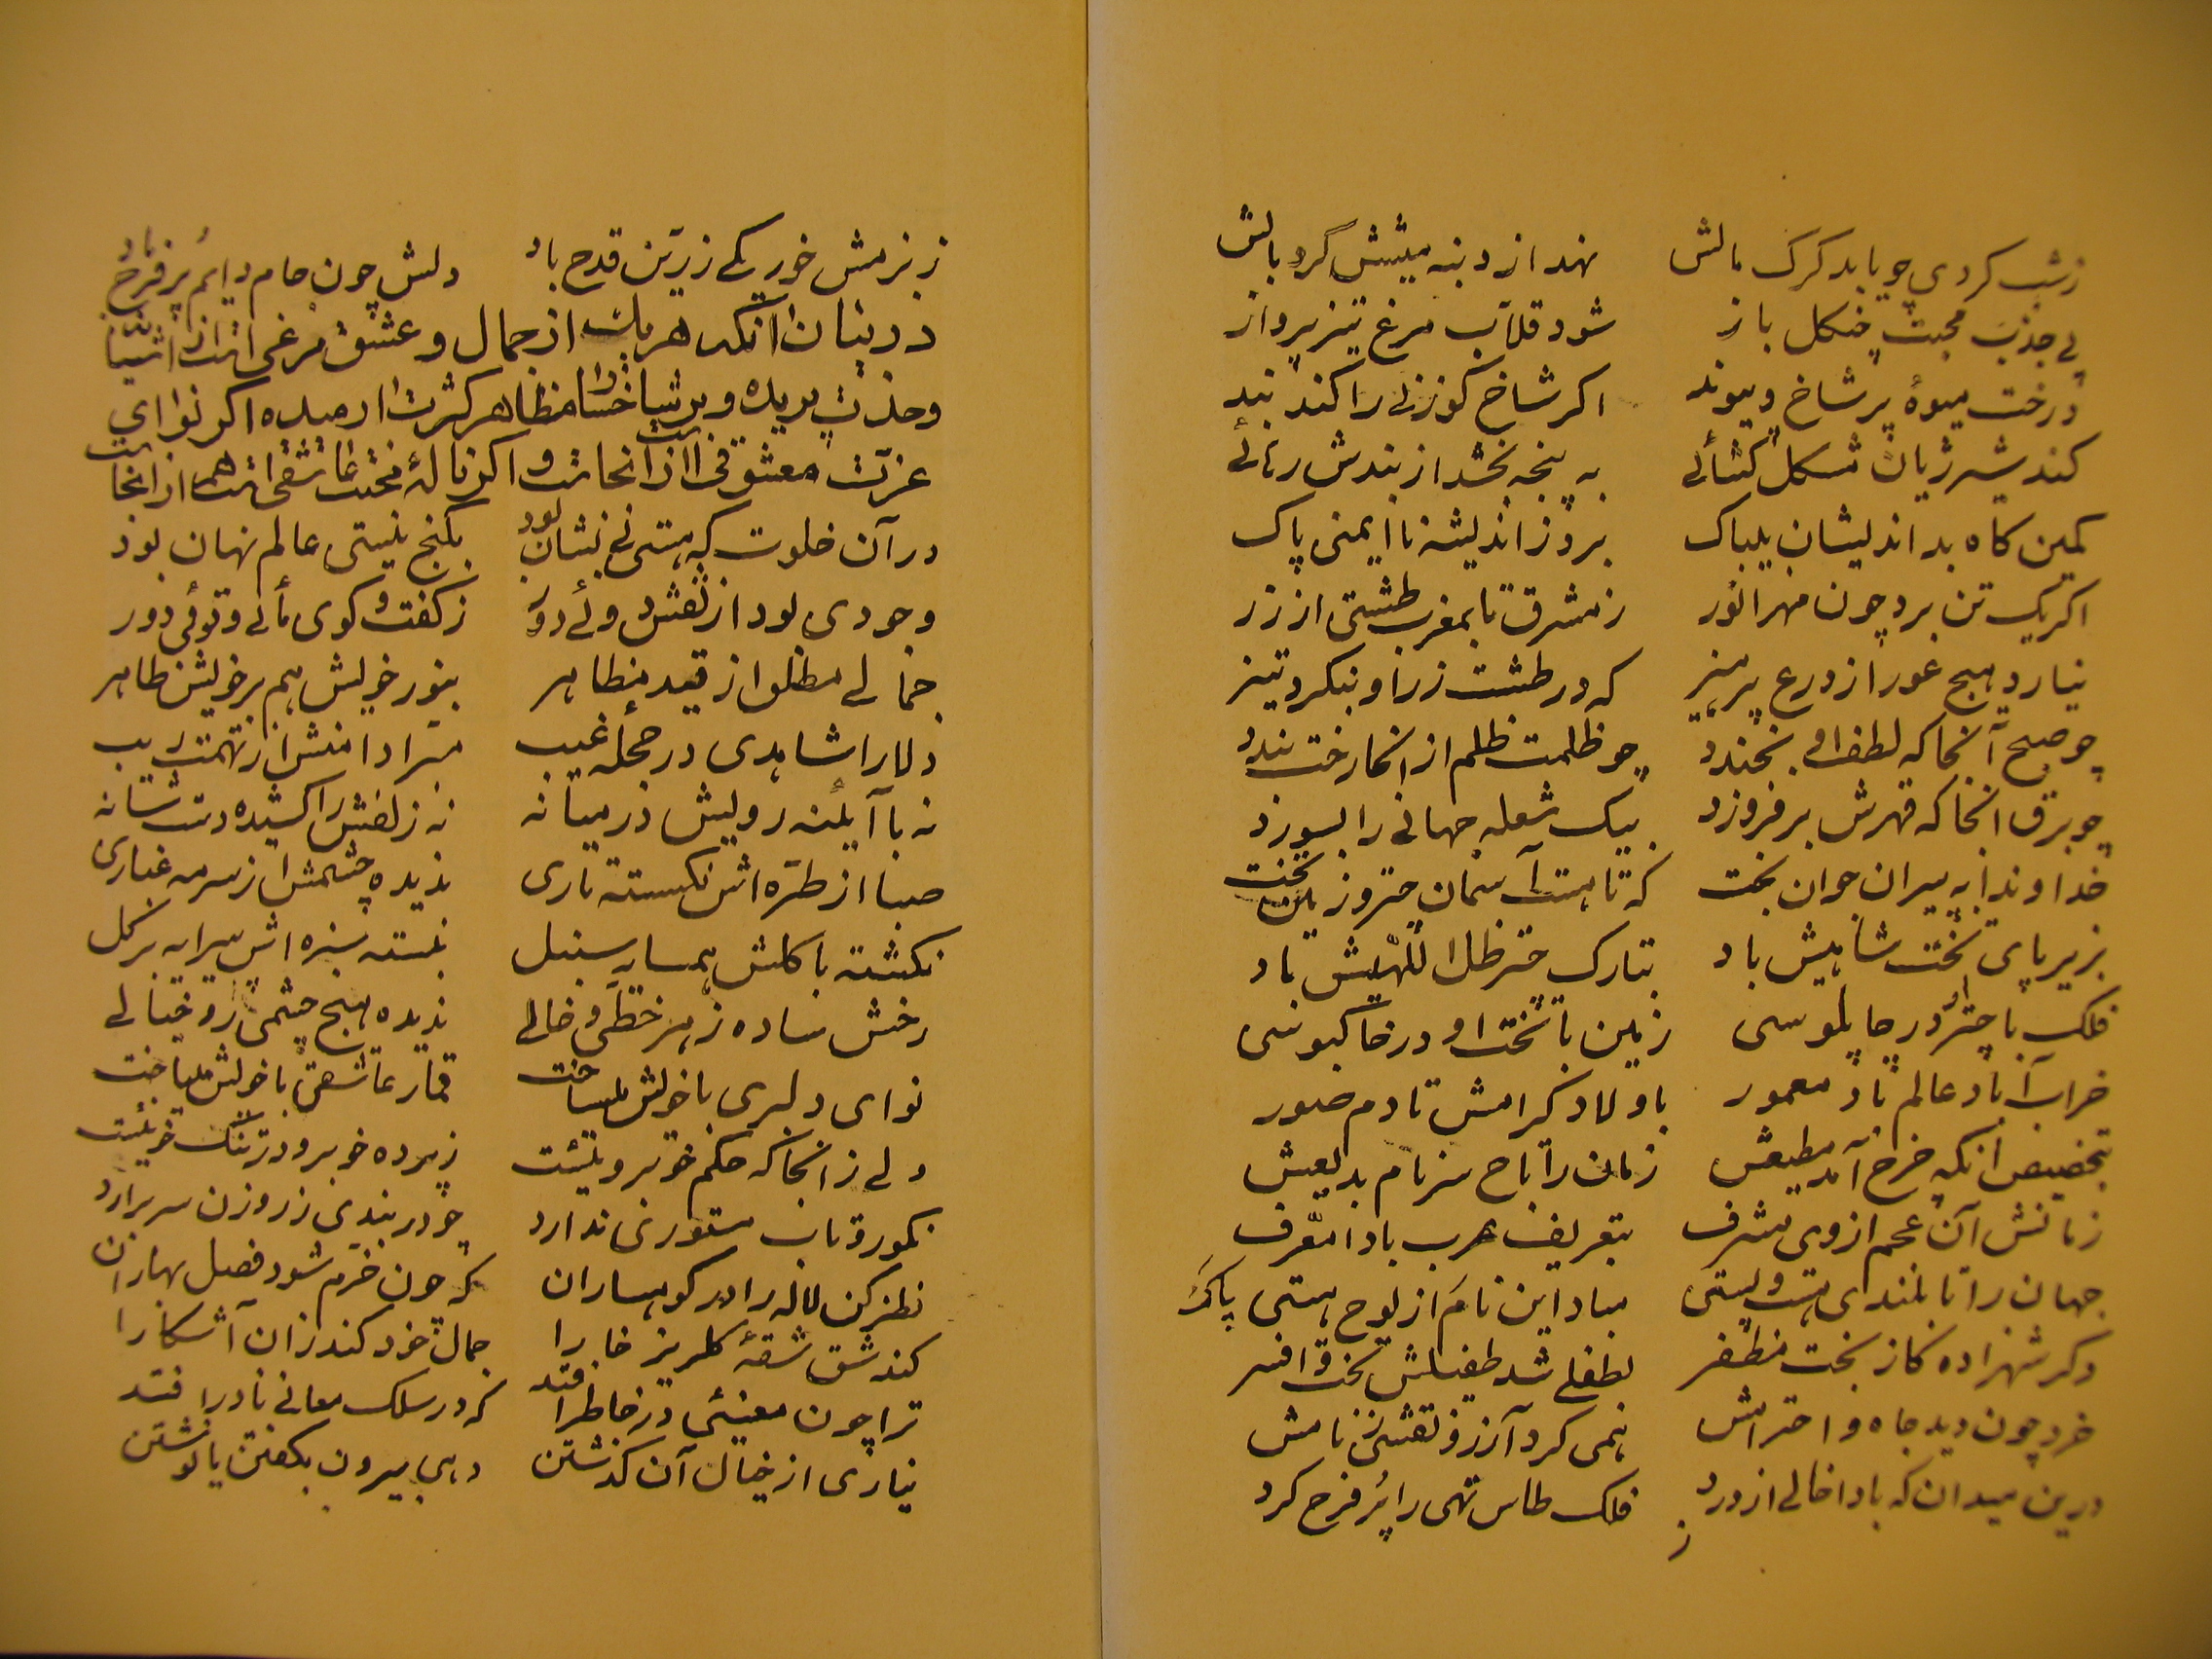 زشب کردی چو یابد کرک مالش نهد از دنبه میشش گرد بالش
پی جذب محبت چنکل باز شود قلاب مرغ تیز پرواز
درخت میوهٔ پرشاخ و پیوند اکر شاخ کوزنی را کند بند
کند شیر ژیان مشکل کشائی به پنجه بخشد از بندش رهائی
کمین کاه بد اندیشان بیباک برد ز اندیشه نا ایمنی پاک
اکر یک تن برد چون مهر انور ز مشرق تا بمغرب طشتی از زر
نیارد هیچ عور از درع پرهیز که در طشت زر او بنکرد تیز
چو صبح آنجا که لطف او بخندد چو ظلمت ظلم از انجا رخت بندد
چو برق انجا که قهرش بر فروزد بیک شعله جهانی را بسوزد
خداوندا به پیران جوان بخت که تا هست آسمان چتر و زمین تخت
بزیر پای تخت شاهیش باد بتارک چتر ظل اللهیش باد
فلک با چتر او در چاپلوسی زمین با تخت او در خاکبوسی
خراب آباد عالم باد معمور باولاد کرامش تا دم صور
بتخصیص انکه چرخ آمد مطیعش زمان را تاج سر نام بدیعش
زمانش آن عجم از وی مشرف بتعریف عرب بادا معرف
جهان را تا بلندی هست و پستی مباد این نام از لوح هستی پاک
دکر شهزاده کاز بخت مظفر بطفلی شد طفیلش تخت و افسر
خرد چون دید جاه و احترامش همی کرد آرزو نقشی ز نامش
درین میدان که بادا خالی از درد فلک طاس تهی را پر فرح کرد
ز
ز بزمش خور یکی زرین قدح باد دلش چون جام دایم پر فرح باد
در بیان انکه هر یک از جمال و عشق مرغی است از اشیان
وحدت پریده و بر شاخسار مظاهر کثرت ارمیده اکر نوای
عزت معشوقی است از انجاست و اکر نالهٔ محنت عاشقی است هم از انجاست
در آن خلوت که هستی بی نشان بود بکنج نیستی عالم نهان بود
وجودی بود از نقش دوئی دور ز کفت و کوی مائی و توئی دور
جمالی مطلق از قید مظاهر بنور خویش هم بر خویش ظاهر
دلارا شاهدی در حجلهٔ غیب مبرا دامنش از تهمت عیب
نه با آینه رویش در میانه نه زلفش را کشیده دست شانه
صبا از طره اش نکسسته تاری ندیده چشمش از سرمه غباری
نکشته با کلش همسایه سنبل نبسته سبزه اش پیرایه بر کل
رخش ساده ز هر خطی و خالی ندیده هیچ چشمی زو خیالی
نوای دلبری با خویش میساخت قمار عاشقی با خویش میباخت
ولی زانجا که حکم خوبروئیست ز پرده خوبرو در تنک خوئیست
نکورو تاب مستوری ندارد چو در بندی ز روزن سر برارد
نظر کن لاله را در کوهساران که چون خرم شود فصل بهاران
کند شق شقهٔ کلریز خارا جمال خود کند زان آشکارا
ترا چون معنیئی در خاطر افتد که در سلک معانی نادر افتد
نیاری از خیال آن کذشتن دهی بیرون بکفتن یا نوشتن